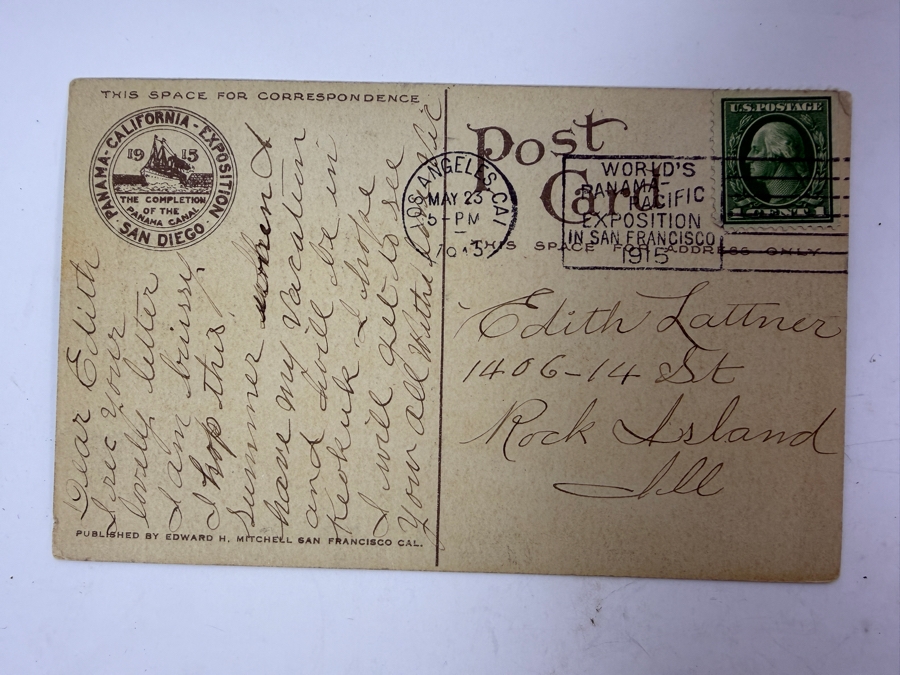 THIS SPACE FOR CORRESPONDENCE
PANAMA-CALIFORNIA-EXPOSITION
1915
THE COMPLETION
OF THE
PANAMA CANAL
SAN DIEGO
Dear Edith
I rec your
lovely letter
I am
I hop this
summer when I
have my vacation
and I will be in
Keokuk I hope
I will get to see
You all With
PUBLISHED BY EDWARD H. MITCHELL SAN FRANCISCO CAL.
Post
Card
THIS SPACE FOR ADDRESS ONLY
LOS ANGELES, CAL
MAY 23
5-PM
WORLD'S
PANAMA-
PACIFIC
EXPOSITION
IN SAN FRANCISCO
1915
U.S.POSTAGE
1 CENT 1
Edith Lattner
1406-14 St
Rock Island
Ill